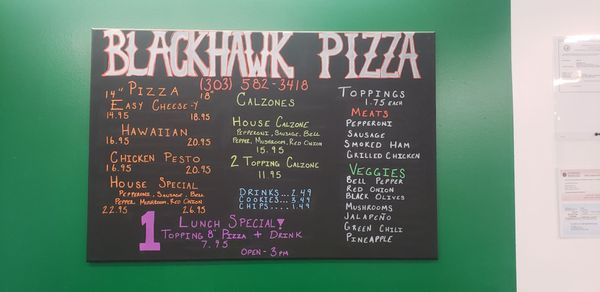 BLACKHAWK PIZZA
(303) 582-3418
14" PIZZA 18"
EASY CHEESE-7
14.95 18.95
HAWAIIAN
16.95 20.95
CHICKEN PESTO
16.95 20.95
HOUSE SPECIAL
PEPPERONI, SAUSAGE, BELL
PEPPER, MUSHROOM, RED ONION
22.95 26.95
CALZONES
HOUSE CALZONE
PEPPERONI, SAUSAGE, BELL
PEPPER, MUSHROOM, RED ONION
15.95
2 TOPPING CALZONE
11.95
DRINKS... 2.49
COOKIES... 3.49
CHIPS.... 1.49
TOPPINGS
1.75 EACH
MEATS
PEPPERONI
SAUSAGE
SMOKED HAM
GRILLED CHICKEN
VEGGIES
BELL PEPPER
RED ONION
BLACK OLIVES
MUSHROOMS
JALAPEÑO
GREEN CHILI
PINEAPPLE
LUNCH SPECIAL!
1 TOPPING 8" PIZZA + DRINK
7.95
OPEN - 3PM